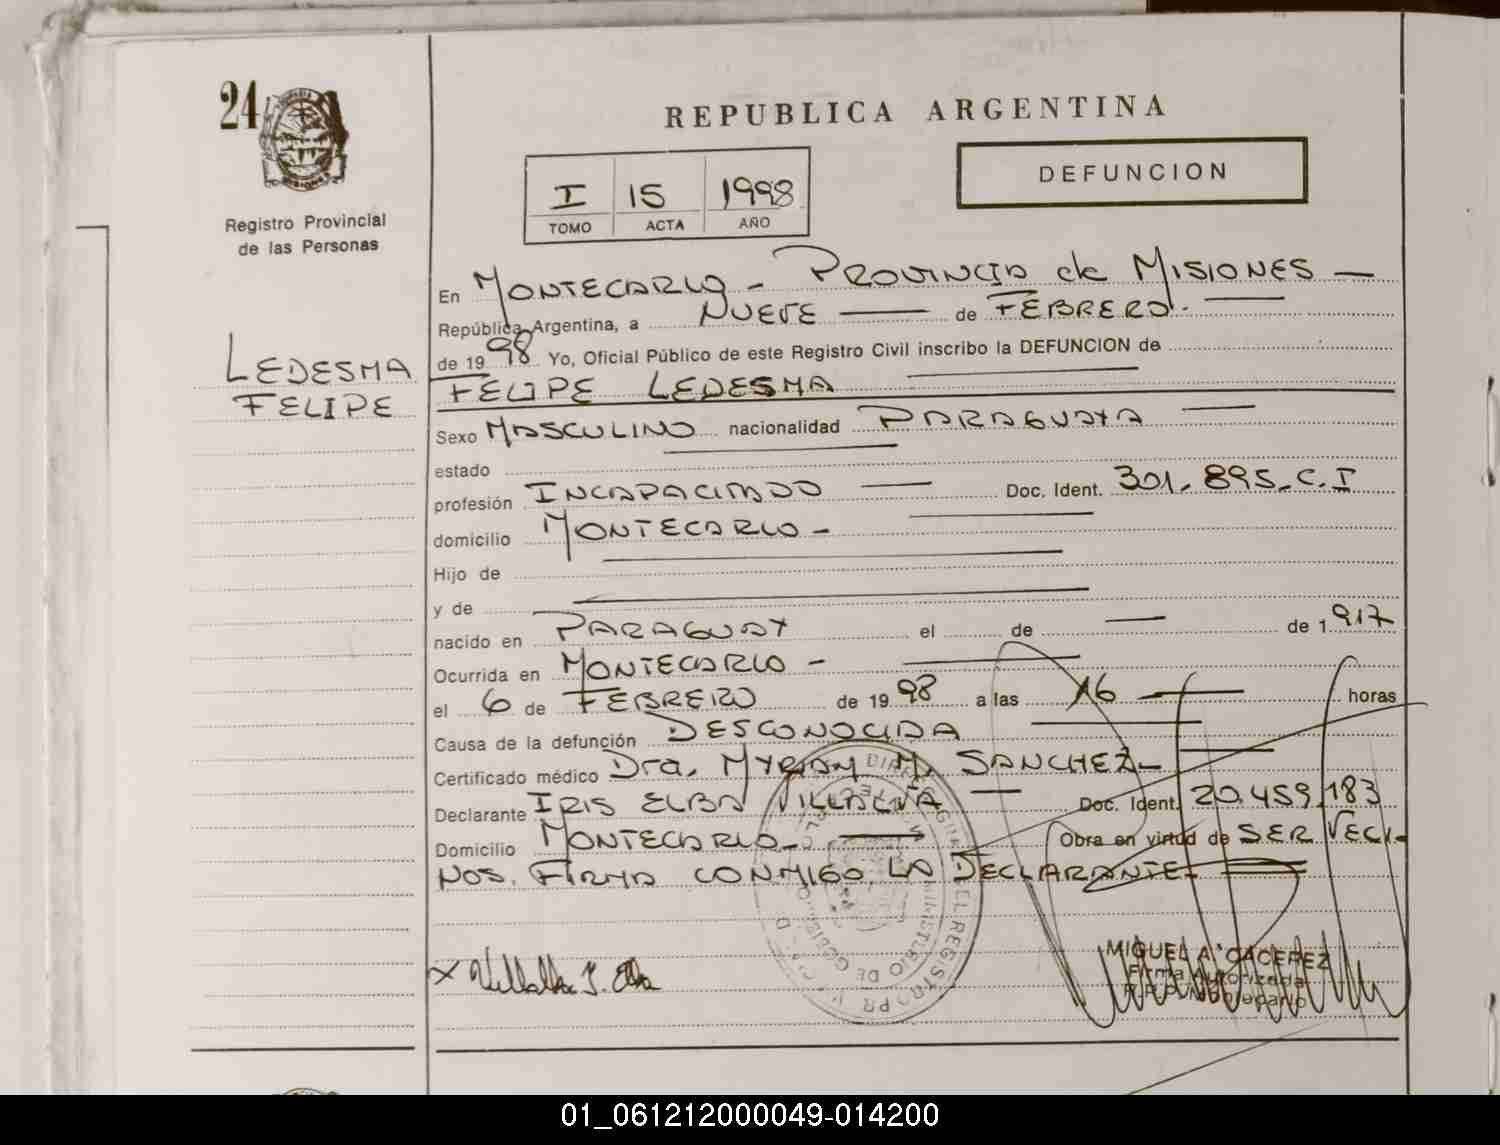 24
Registro Provincial
de las Personas
LEDESMA
FELIPE
REPUBLICA ARGENTINA
DEFUNCION
I 15 1998
TOMO ACTA AÑO
En MONTECARLO - PROVINCIA de MISIONES —
República Argentina, a NUEVE — de FEBRERO. —
de 1998 Yo, Oficial Público de este Registro Civil inscribo la DEFUNCION de
FELIPE LEDESMA —
Sexo MASCULINO nacionalidad PARAGUAYA —
estado —
profesión INCAPACITADO — Doc. Ident. 301.895.C.I
domicilio MONTECARLO - —
Hijo de —
y de —
nacido en PARAGUAY el de — de 1917
Ocurrida en MONTECARLO - —
el 6 de FEBRERO de 1998 a las 16 — horas
Causa de la defunción DESCONOCIDA —
Certificado médico Dra. MYRIAM M. SANCHEZ — 
Declarante IRIS ELBA VILLALVA — Doc. Ident. 20.459.183
Domicilio MONTECARLO - — Obra en virtud de SER VECI-
NOS. FIRMA CONMIGO LA DECLARANTE —
x Villalba I. Elba
MIGUEL A. CACEREZ
Firma Autorizada
01_061212000049-014200